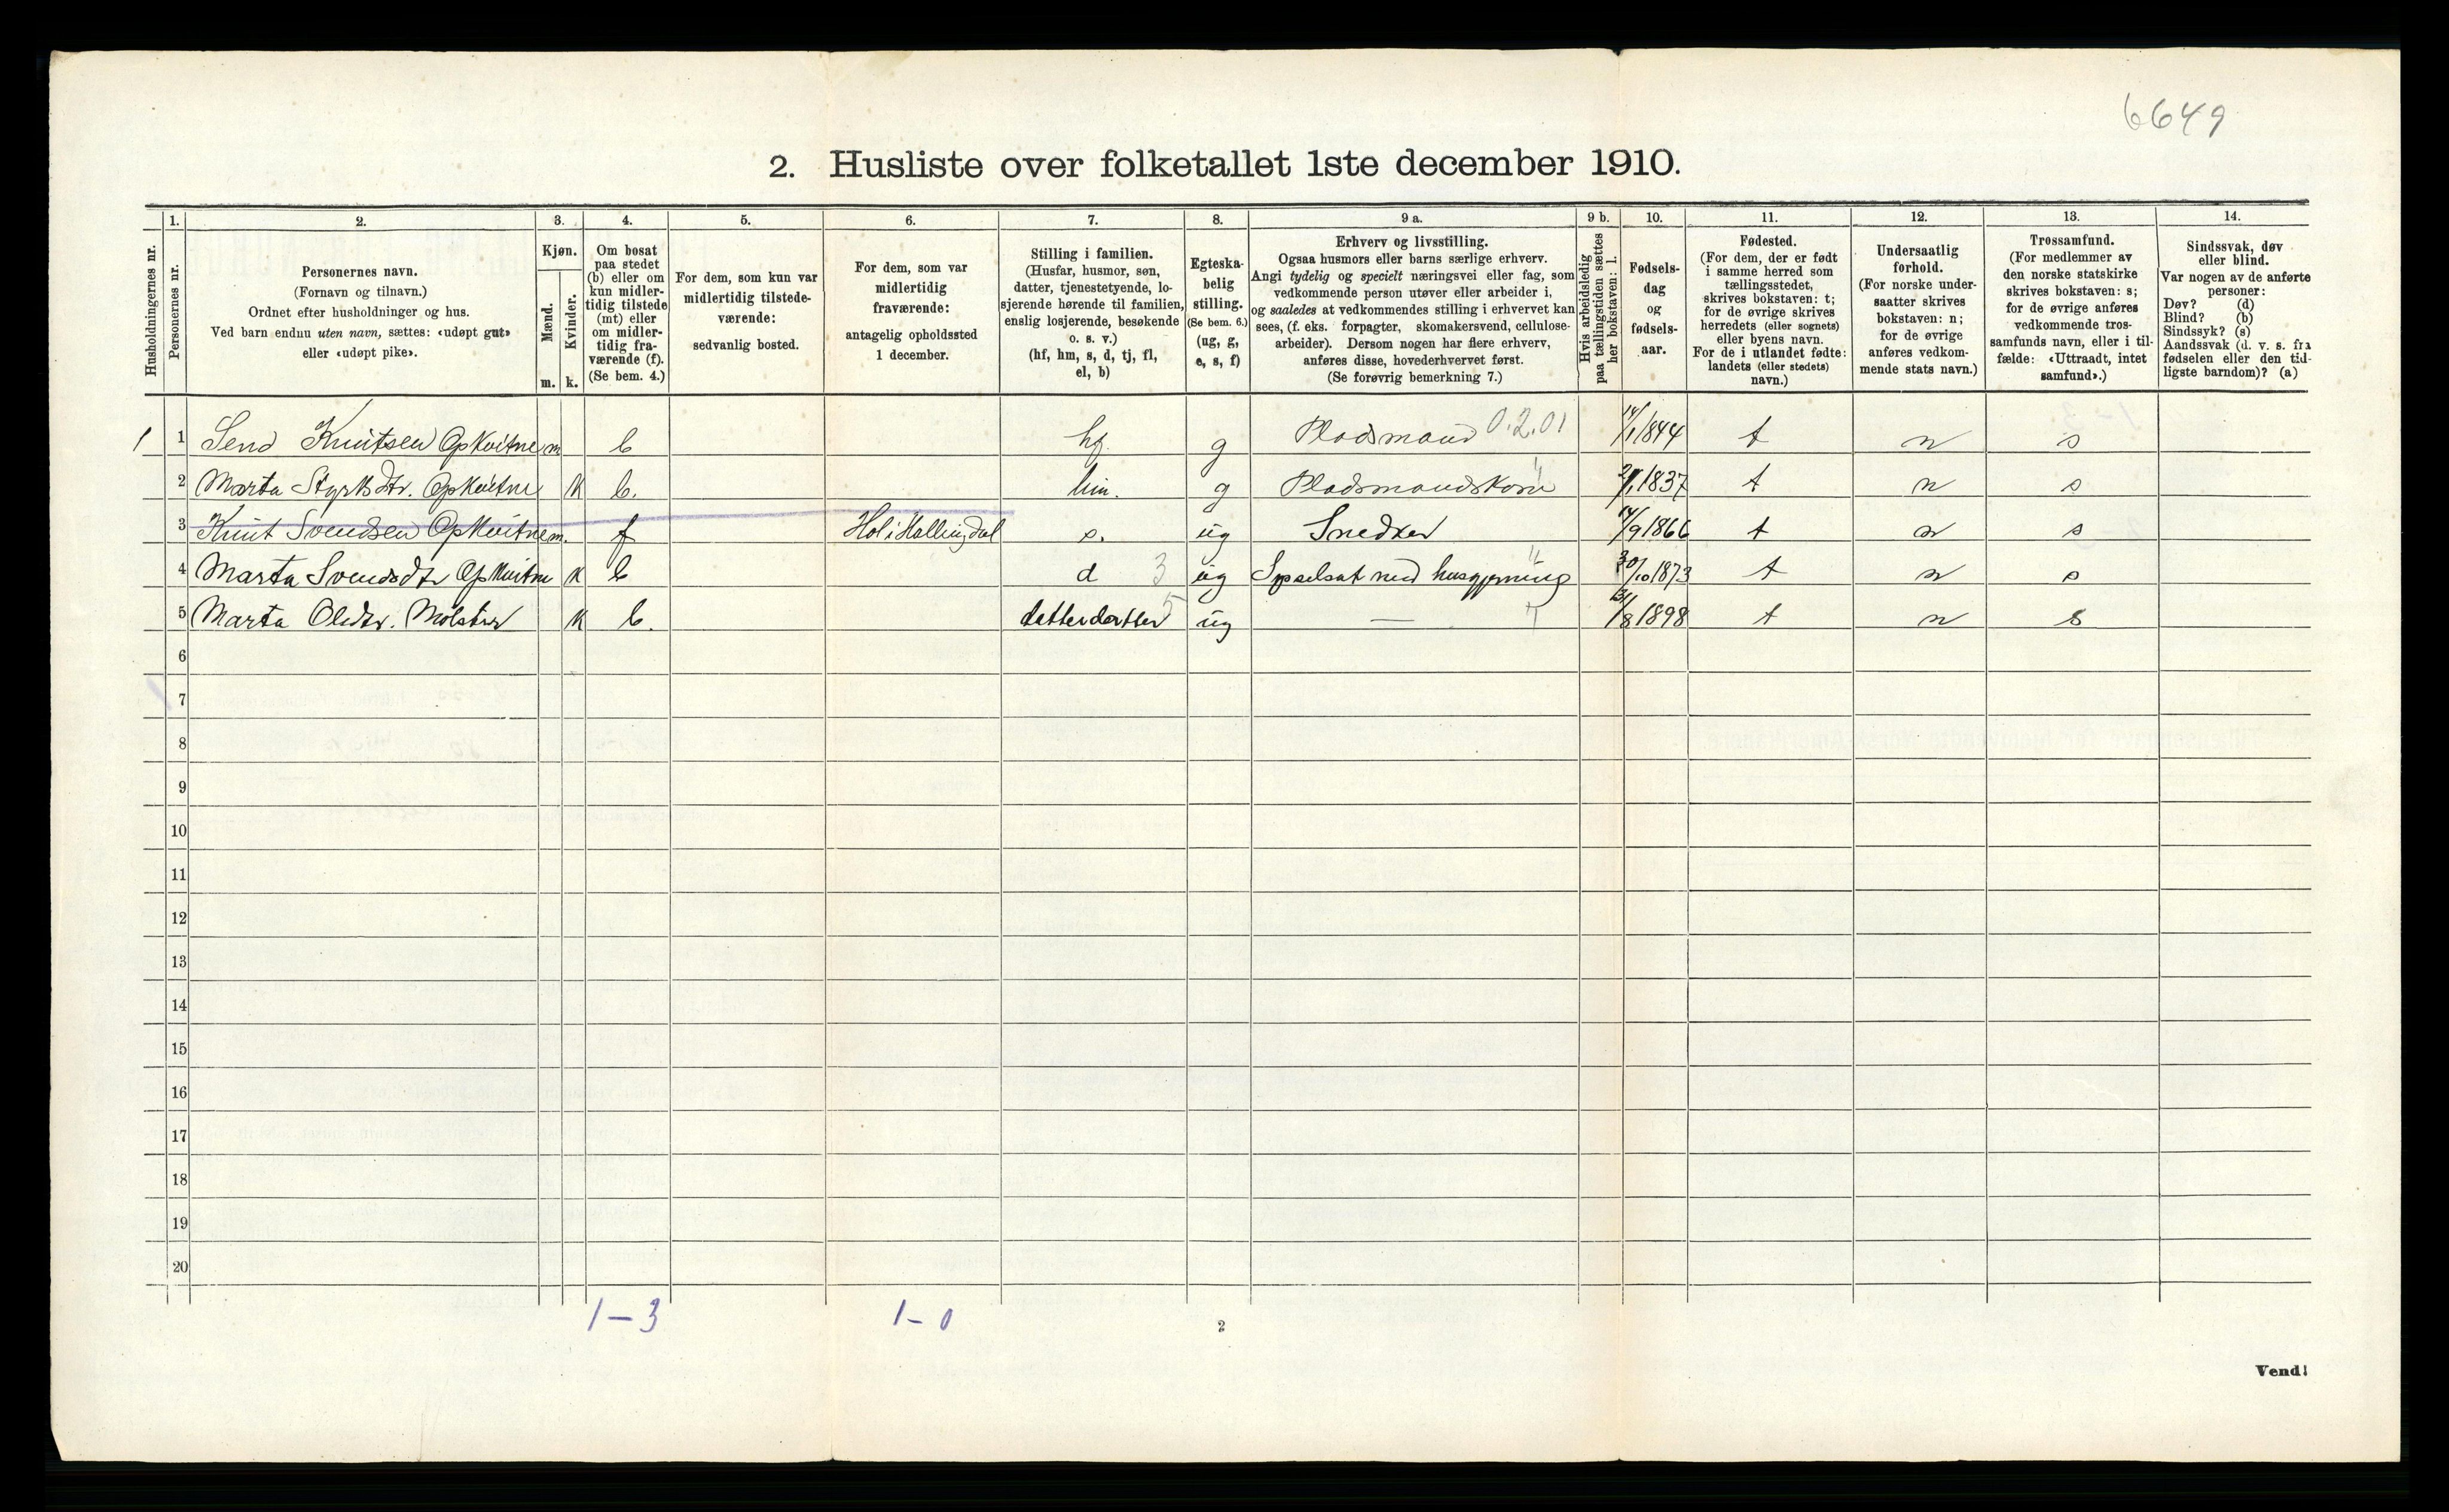 6649
2. Husliste over folketallet 1ste december 1910.
Husholdningernes nr.
1.
Personernes nr.
2.
Personernes navn.
(Fornavn og tilnavn.)
Ordnet efter husholdninger og hus.
Ved barn endnu uten navn, sættes: «udøpt gut»
eller «udøpt pike».
3.
Kjøn.
Mænd.
Kvinder.
m. k.
4.
Om bosat
paa stedet
(b) eller om
kun midler-
tidig tilstede
(mt) eller
om midler-
tidig fra-
værende (f).
(Se bem. 4.)
5.
For dem, som kun var
midlertidig tilstede-
værende:
sedvanlig bosted.
6.
For dem, som var
midlertidig
fraværende:
antagelig opholdssted
1 december.
7.
Stilling i familien.
(Husfar, husmor, søn,
datter, tjenestetyende, lo-
sjerende hørende til familien,
enslig losjerende, besøkende
o. s. v.)
(hf, hm, s, d, tj, fl,
el, b)
8.
Egteska-
belig
stilling.
(Se bem. 6.)
(ug, g,
e, s, f)
9 a.
Erhverv og livsstilling.
Ogsaa husmors eller barns særlige erhverv.
Angi tydelig og specielt næringsvei eller fag, som
vedkommende person utøver eller arbeider i,
og saaledes at vedkommendes stilling i erhvervet kan
sees, (f. eks. forpagter, skomakersvend, cellulose-
arbeider). Dersom nogen har flere erhverv,
anføres disse, hovederhvervet først.
(Se forøvrig bemerkning 7.)
9 b.
Hvis arbeidsledig
paa tællingstiden sættes
her bokstaven: l.
10.
Fødsels-
dag
og
fødsels-
aar.
11.
Fødested.
(For dem, der er født
i samme herred som
tællingsstedet,
skrives bokstaven: t;
for de øvrige skrives
herredets (eller sognets)
eller byens navn.
For de i utlandet fødte:
landets (eller stedets)
navn.)
12.
Undersaatlig
forhold.
(For norske under-
saatter skrives
bokstaven: n;
for de øvrige
anføres vedkom-
mende stats navn.)
13.
Trossamfund.
(For medlemmer av
den norske statskirke
skrives bokstaven: s;
for de øvrige anføres
vedkommende tros-
samfunds navn, eller i til-
fælde: «Uttraadt, intet
samfund».)
14.
Sindssvak, døv
eller blind.
Var nogen av de anførte
personer:
Døv? (d)
Blind? (b)
Sindssyk? (s)
Aandssvak (d. v. s. fra
fødselen eller den tid-
ligste barndom)? (a)
1 1 Send Knutsen Opkvitne m b hf. g Pladsmand 0.2.01 14/1 1844 t n s
2 Marta Styrksdtr. Opkvitne k b. hm. g Pladsmandskone " 2/1 1837 t n s
3 Knut Svendsen Opkvitne m. f Hol i Hallingdal s. ug Snedker 14/9 1866 t n s
4 Marta Svendsdtr Opkvitne k b d 3 ug Sysselsat med husgjerning " 30/10 1873 t n s
5 Marta Olsdtr. Mølster k b. datterdatter 5 ug — " 31/8 1898 t n s
6
7
8
9
10
11
12
13
14
15
16
17
18
19
20
1-3 1-0
2
Vend!